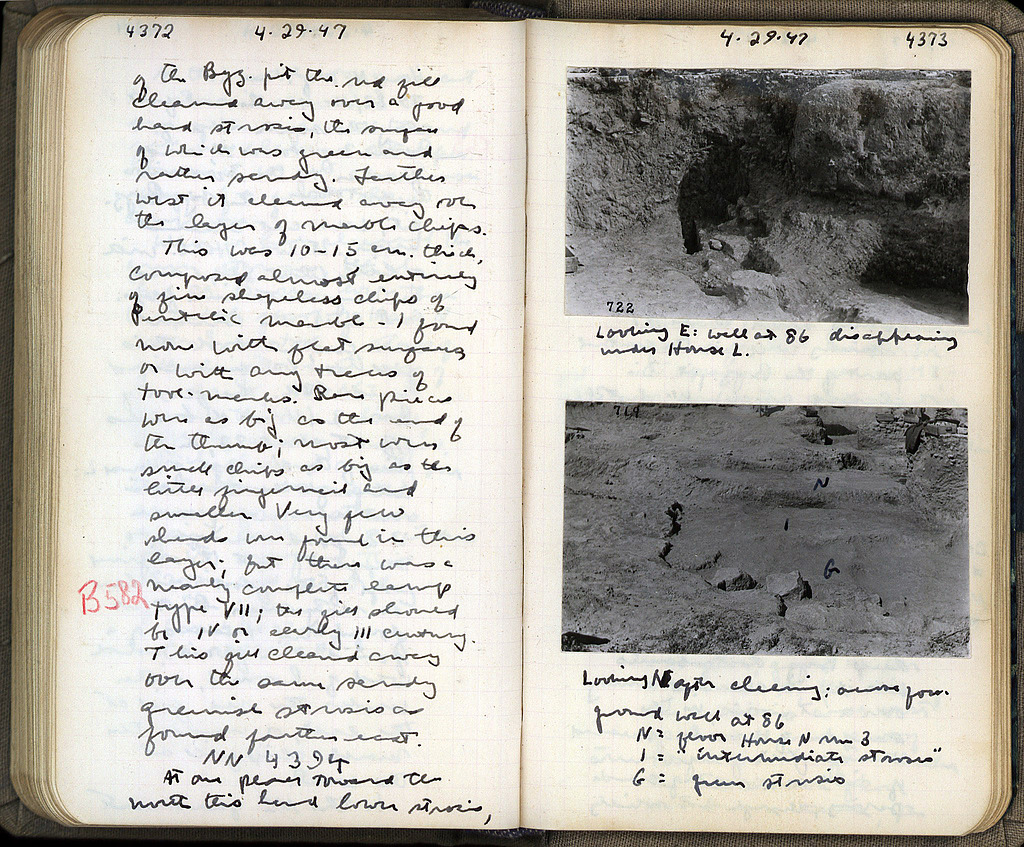 4372 4·29·47
of the Byz. pit the red fill
cleaned away over a good
hard strosis, the surface
of which was green and
rather sandy. Farther
west it cleaned away over
the layer of marble chips.
This was 10-15 cm. thick,
composed almost entirely
of fine shapeless chips of
Pentelic marble - I found
none with flat surfaces
or with any traces of
tool-marks. Rare pieces
were as big as the end of
the thumb; most were
small chips as big as the
little fingernail and
smaller. Very few
sherds were found in this
layer; but there was a
B582 nearly complete lamp
type VII; the fill should
be IV or early III century.
This fill cleaned away
over the same sandy
greenish strosis as
found farther east.
NN 4394
At one place toward the
north this hard lower strosis,
4·29·47 4373
722
Looking E: well at 86 disappearing
under House L.
769
N
I
G
Looking N after cleaning: across fore-
ground well at 86
N = floor House N rm 3
I = "intermediate strosis"
G = green strosis